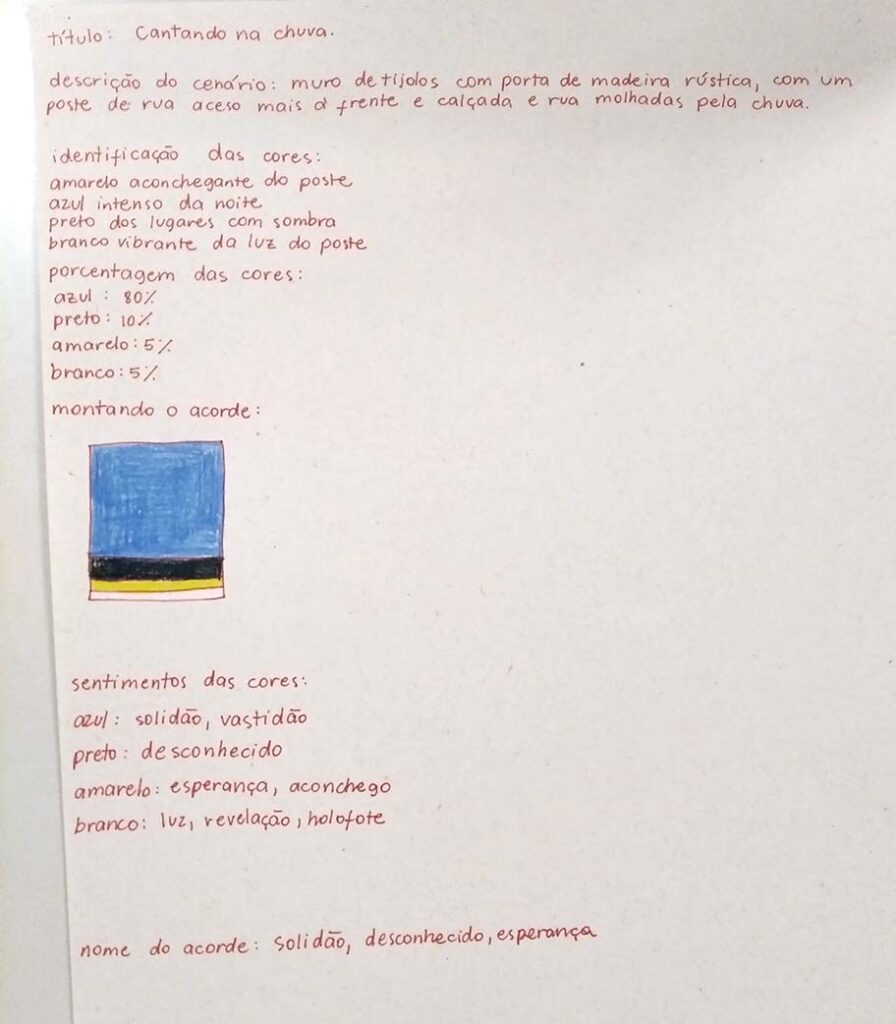 título: Cantando na chuva.
descrição do cenário: muro de tijolos com porta de madeira rústica, com um
poste de rua aceso mais à frente e calçada e rua molhadas pela chuva.
identificação das cores:
amarelo aconchegante do poste
azul intenso da noite
preto dos lugares com sombra
branco vibrante da luz do poste
porcentagem das cores:
azul: 80%
preto: 10%
amarelo: 5%
branco: 5%
montando o acorde:
sentimentos das cores:
azul: solidão, vastidão
preto: desconhecido
amarelo: esperança, aconchego
branco: luz, revelação, holofote
nome do acorde: solidão, desconhecido, esperança